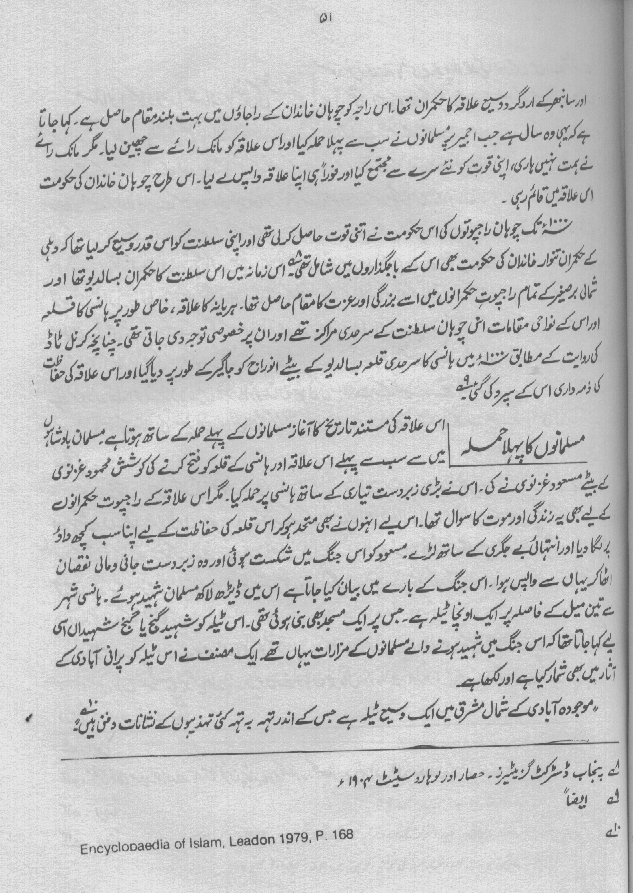 ۵۱
اور سانبھر کے اردگرد وسیع علاقہ کا حکمران تھا۔ اس راجہ کو چوہان خاندان کے راجاؤں میں بہت بلند مقام حاصل ہے۔ کہا جاتا
ہے کہ یہی وہ سال ہے جب اجمیر پر مسلمانوں نے سب سے پہلا حملہ کیا اور اس علاقہ کو مانک رائے سے چھین لیا۔ مگر مانک رائے
نے ہمت نہیں ہاری، اپنی قوت کو نئے سرے سے مجتمع کیا اور فوراً ہی اپنا علاقہ واپس لے لیا۔ اس طرح چوہان خاندان کی حکومت
اس علاقہ میں قائم رہی۔
۱۰۰۰ء تک چوہان راجپوتوں کی اس حکومت نے اتنی قوت حاصل کر لی تھی اور اپنی سلطنت کو اس قدر وسیع کر لیا تھا کہ دہلی
کے حکمران تنوار خاندان کی حکومت بھی اس کے باجگذاروں میں شامل تھی۸ اس زمانہ میں اس سلطنت کا حکمران بسالدیو تھا اور
شمالی برصغیر کے تمام راجپوت حکمرانوں میں اسے بزرگی اور عزت کا مقام حاصل تھا۔ ہریانہ کا علاقہ، خاص طور پر ہانسی کا قلعہ
اور اس کے نواحی مقامات اسی چوہان سلطنت کے سرحدی مراکز تھے اور ان پر خصوصی توجہ دی جاتی تھی۔ چنانچہ کرنل ٹاڈ
کی روایت کے مطابق ۱۰۰۰ء میں ہانسی کا سرحدی قلعہ بسالدیو کے بیٹے انوراج کو جاگیر کے طور پر دیا گیا اور اس علاقہ کی حفاظت
کا ذمہ داری اس کے سپرد کی گئی۹
مسلمانوں کا پہلا حملہ
اس علاقہ کی مستند تاریخ کا آغاز مسلمانوں کے پہلے حملہ کے ساتھ ہوتا ہے۔ مسلمان بادشاہوں
میں سے سب سے پہلے اس علاقہ اور ہانسی کے قلعہ کو فتح کرنے کی کوشش محمود غزنوی
کے بیٹے مسعود غزنوی نے کی۔ اس نے بڑی زبردست تیاری کے ساتھ ہانسی پر حملہ کیا۔ مگر اس علاقہ کے راجپوت حکمرانوں
کے لیے بھی یہ زندگی اور موت کا سوال تھا۔ اس لیے انہوں نے بھی متحد ہو کر اس قلعہ کی حفاظت کے لیے اپنا سب کچھ داؤ
پر لگا دیا اور انتہائی بے جگری کے ساتھ لڑے۔ مسعود کو اس جنگ میں شکست ہوئی اور وہ زبردست جانی و مالی نقصان
اٹھا کر یہاں سے واپس ہوا۔ اس جنگ کے بارے میں بیان کیا جاتا ہے اس میں ڈیڑھ لاکھ مسلمان شہید ہوئے۔ ہانسی شہر
سے تین میل کے فاصلہ پر ایک اونچا ٹیلہ ہے۔ جس پر ایک مسجد بھی بنی ہوئی تھی۔ اس ٹیلہ کو شہید گنج یا گنج شہیداں اسی
لیے کہا جاتا تھا کہ اس جنگ میں شہید ہونے والے مسلمانوں کے مزارات یہاں تھے۔ ایک مصنف نے اس ٹیلہ کو پرانی آبادی کے
آثار میں بھی شمار کیا ہے اور لکھا ہے۔
"موجودہ آبادی کے شمال مشرق میں ایک وسیع ٹیلہ ہے جس کے اندر تہہ بہ تہہ کئی تہذیبوں کے نشانات دفن ہیں۱۰"
۸ پنجاب ڈسٹرکٹ گزیٹیرز۔ حصار اور لوہارو سٹیٹ ۱۹۰۴ء
۹ ایضاً
۱۰
Encyclopaedia of Islam, Leadon 1979, P. 168